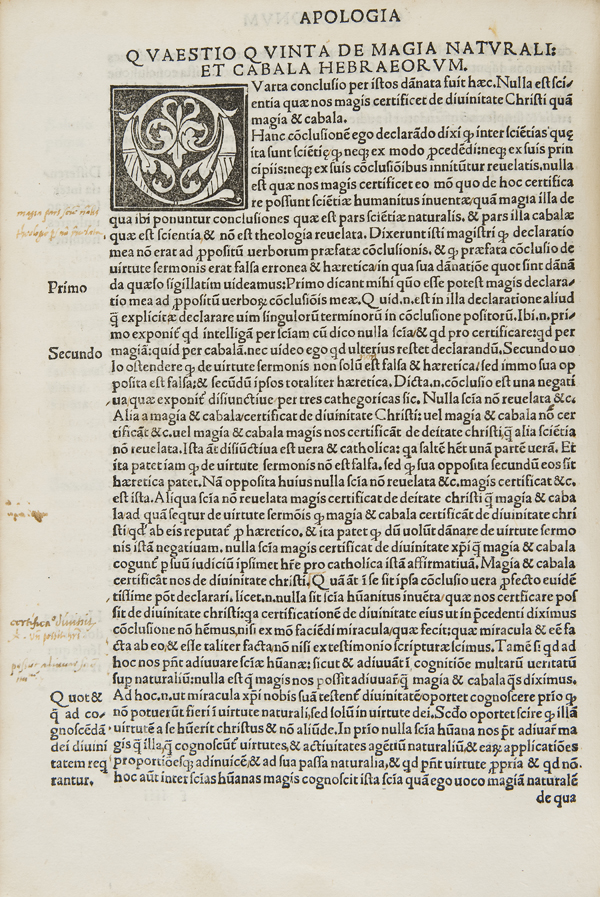 APOLOGIA
QVAESTIO QVINTA DE MAGIA NATVRALI:
ET CABALA HEBRAEORVM.
QVarta conclusio per istos dãnata fuit hæc. Nulla est sci-
entia quæ nos magis certificet de diuinitate Christi quã
magia & cabala.
Hanc cõclusionẽ ego declarãdo dixi ꝙ inter sciẽtias quę
ita sunt sciẽtię ꝙ neqꝫ ex modo ꝓcedẽdi: neqꝫ ex suis prin
cipiis: neqꝫ ex suis cõclusiõibus innitũtur reuelatis, nulla
est quæ nos magis certificet eo mõ quo de hoc certifica
re possunt sciẽtiæ humanitus inuentæ/quã magia illa de
qua ibi ponuntur conclusiones quæ est pars sciẽtiæ naturalis. & pars illa cabalæ
quæ est scientia, & nõ est theologia reuelata. Dixerunt isti magistri ꝙ declaratio
mea nõ erat ad ꝓpositũ uerborum præfatæ cõclusionis. & ꝙ præfata cõclusio de
uirtute sermonis erat falsa erronea & hæretica/in qua sua dãnatiõe quot sint dãnã
da quæso sigillatim uideamus: Primo dicant mihi quõ esse potest magis declara-
Primo
tio mea ad ꝓpositũ uerboꝝ cõclusiõis meæ. Quid.n.est in illa declaratione aliud
q̃ explicitæ declarare uim singulorũ terminorũ in cõclusione positorũ. Ibi.n.pri-
mo exponit᷒ qd intelligã per sciam cũ dico nulla scia/& qd pro certificare: qd per
Secundo
magiã: quid per cabalã. nec uideo ego qd ulterius restet declarandũ. Secundo uo
lo ostendere ꝙ de uirtute sermonis non solũ est falsa & hæretica/sed immo sua op
posita est falsa: & secũdũ ipsos totaliter hæretica. Dicta.n.cõclusio est una negati
ua quæ exponit᷒ disiunctiue per tres cathegoricas sic. Nulla scia nõ reuelata &c.
Alia a magia & cabala/certificat de diuinitate Christi: uel magia & cabala nõ cer
tificãt &c. uel magia & cabala magis nos certificãt de deitate christi/q̃ alia sciẽtia
nõ reuelata. Ista aũt disiũctiua est uera & catholica: qa saltẽ hẽt unã partẽ uerã. Et
ita patet iam ꝙ de uirtute sermonis nõ est falsa. sed ꝙ sua opposita secundũ eos sit
hæretica patet. Nã opposita huius nulla scia nõ reuelata &c. magis certificat &c.
est ista. Aliqua scia nõ reuelata magis certificat de deitate christi q̃ magia & caba
la/ad quã seqtur de uirtute sermõis ꝙ magia & cabala certificãt de diuinitate chri
sti qd ab eis reputat᷒ ꝓ hæretico. & ita patet ꝙ dũ uolũt dãnare de uirtute sermo
nis istã negatiuam. nulla scia magis certificat de diuinitate xp̃i ꝙ magia & cabala
cogunt᷒ ꝑ suũ iudiciũ ipsimet hr̃e pro catholica istã affirmatiuã. Magia & cabala
certificãt nos de diuinitate christi. Quã aũt ĩ se sit ipsa cõclusio uera ꝓfecto euidẽ
tissime põt declarari. licet.n.nulla sit scia hũanitus inuẽta/quæ nos certificare pos
sit de diuinitate christi: qa certificationẽ de diuinitate eius ut in p̃cedenti diximus
cõclusione nõ hẽmus, nisi ex mõ faciẽdi miracula/quæ fecit: quæ miracula & eẽ fa
cta ab eo/& esse taliter facta/nõ nisi ex testimonio scripturæ scimus. Tamẽ si qd ad
hoc nos pñt adiuuare sciæ hũanæ: sicut & adiuuãt ĩ cognitiõe multarũ ueritatũ
sup naturaliũ: nulla est q̃ magis nos possit adiuuar̃ q̃ magia & cabala q̃s diximus.
Quot &
q̃ ad co-
gnoscẽdã
dei diuini
tatem req
rantur.
Ad hoc.n.ut miracula xp̃i nobis suã testent᷒ diuinitatẽ/oportet cognoscere prio ꝙ
nõ potuerũt fieri ĩ uirtute naturali, sed solũ in uirtute dei. Scd̃o oportet scire ꝙ illã
uirtutẽ a se hũerit christus & nõ aliũde. In prio nulla scia hũana nos põt adiuuar̃ ma
gis q̃ illa/q̃ cognoscũt᷒ uirtutes, & actiuitates agẽtiũ naturaliũ, & eaꝝ applicatiões
proportiõesqꝫ adinuicẽ, & ad sua passa naturalia, & qd pñt uirtute ꝓpria & qd nõ.
hoc aũt inter scias hũanas magis cognoscit ista scia quã ego uoco magiã naturalẽ
de qua